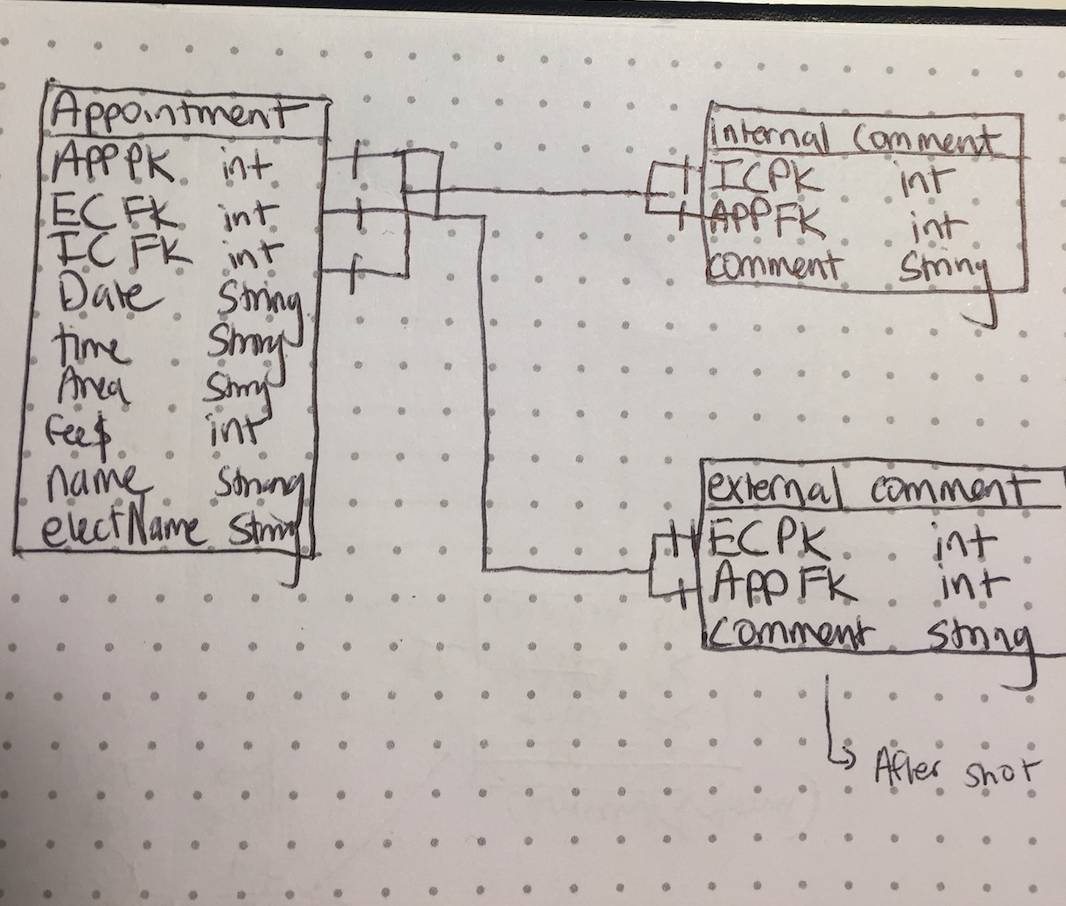 Appointment
APP PK int
EC FK int
IC FK int
Date String
time String
Area String
Fee$ int
name String
electName String
internal comment
IC PK int
APP FK int
comment String
external comment
EC PK int
APP FK int
comment String
After shot